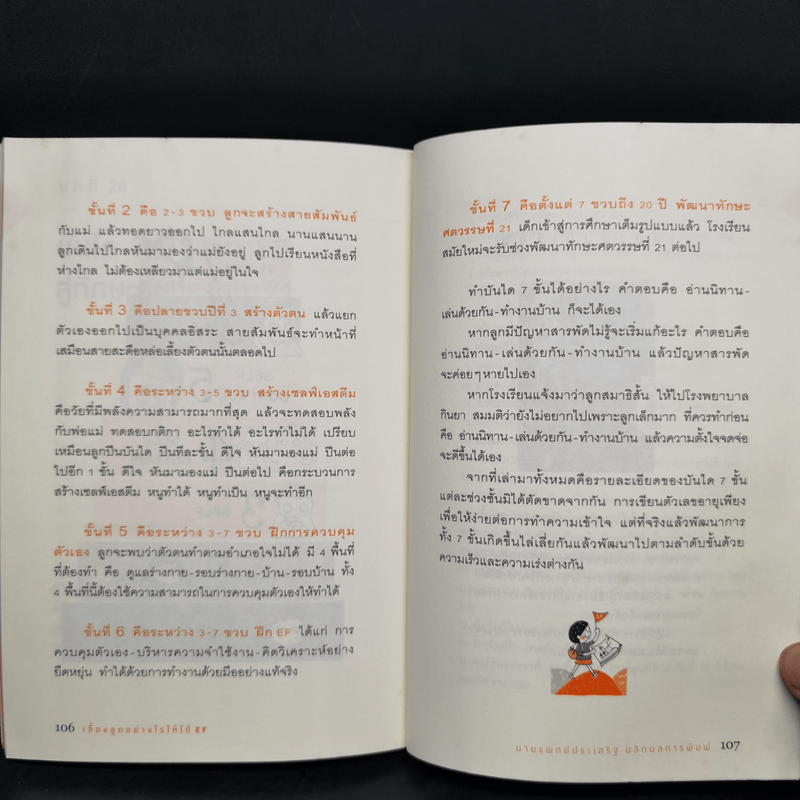 ขั้นที่ 2 คือ 2-3 ขวบ ลูกจะสร้างสายสัมพันธ์
กับแม่ แล้วทอดยาวออกไป ไกลแสนไกล นานแสนนาน
ลูกเดินไปไกลหันมามองว่าแม่ยังอยู่ ลูกไปเรียนหนังสือที่
ห่างไกล ไม่ต้องเหลียวมาแต่แม่อยู่ในใจ
ขั้นที่ 3 คือปลายขวบปีที่ 3 สร้างตัวตน แล้วแยก
ตัวเองออกไปเป็นบุคคลอิสระ สายสัมพันธ์จะทำหน้าที่
เหมือนสายสะดือหล่อเลี้ยงตัวตนนั้นตลอดไป
ขั้นที่ 4 คือระหว่าง 3-5 ขวบ สร้างเซลฟ์เอสตีม
คือวัยที่มีพลังความสามารถมากที่สุด แล้วจะทดสอบพลัง
กับพ่อแม่ ทดสอบกติกา อะไรทำได้ อะไรทำไม่ได้ เปรียบ
เหมือนลูกปีนบันได ปีนทีละขั้น ดีใจ หันมามองแม่ ปีนต่อ
ไปอีก 1 ขั้น ดีใจ หันมามองแม่ ปีนต่อไป คือกระบวนการ
สร้างเซลฟ์เอสตีม หนูทำได้ หนูทำเป็น หนูจะทำอีก
ขั้นที่ 5 คือระหว่าง 3-7 ขวบ ฝึกการควบคุม
ตัวเอง ลูกจะพบว่าตัวตนทำตามอำเภอใจไม่ได้ มี 4 พื้นที่
ที่ต้องทำ คือ ดูแลร่างกาย-รอบร่างกาย-บ้าน-รอบบ้าน ทั้ง
4 พื้นที่นี้ต้องใช้ความสามารถในการควบคุมตัวเองให้ทำได้
ขั้นที่ 6 คือระหว่าง 3-7 ขวบ ฝึก EF ได้แก่ การ
ควบคุมตัวเอง-บริหารความจำใช้งาน-คิดวิเคราะห์อย่าง
ยืดหยุ่น ทำได้ด้วยการทำงานด้วยมืออย่างแท้จริง
106 เลี้ยงลูกอย่างไรให้ได้ EF
ขั้นที่ 7 คือตั้งแต่ 7 ขวบถึง 20 ปี พัฒนาทักษะ
ศตวรรษที่ 21 เด็กเข้าสู่การศึกษาเต็มรูปแบบแล้ว โรงเรียน
สมัยใหม่จะรับช่วงพัฒนาทักษะศตวรรษที่ 21 ต่อไป
ทำบันได 7 ขั้นได้อย่างไร คำตอบคือ อ่านนิทาน-
เล่นด้วยกัน-ทำงานบ้าน ก็จะได้เอง
หากลูกมีปัญหาสารพัดไม่รู้จะเริ่มแก้อะไร คำตอบคือ
อ่านนิทาน-เล่นด้วยกัน-ทำงานบ้าน แล้วปัญหาสารพัด
จะค่อยๆหายไปเอง
หากโรงเรียนแจ้งมาว่าลูกสมาธิสั้น ให้ไปโรงพยาบาล
กินยา สมมติว่ายังไม่อยากไปเพราะลูกเล็กมาก ที่ควรทำก่อน
คือ อ่านนิทาน-เล่นด้วยกัน-ทำงานบ้าน แล้วความตั้งใจจดจ่อ
จะดีขึ้นได้เอง
จากที่เล่ามาทั้งหมดคือรายละเอียดของบันได 7 ขั้น
แต่ละช่วงชั้นมิได้ตัดขาดจากกัน การเขียนตัวเลขอายุเพียง
เพื่อให้ง่ายต่อการทำความเข้าใจ แต่ที่จริงแล้วพัฒนาการ
ทั้ง 7 ขั้นเกิดขึ้นไล่เลี่ยกันแล้วพัฒนาไปตามลำดับขั้นด้วย
ความเร็วและความเร่งต่างกัน
นายแพทย์ประเสริฐ ผลิตผลการพิมพ์ 107